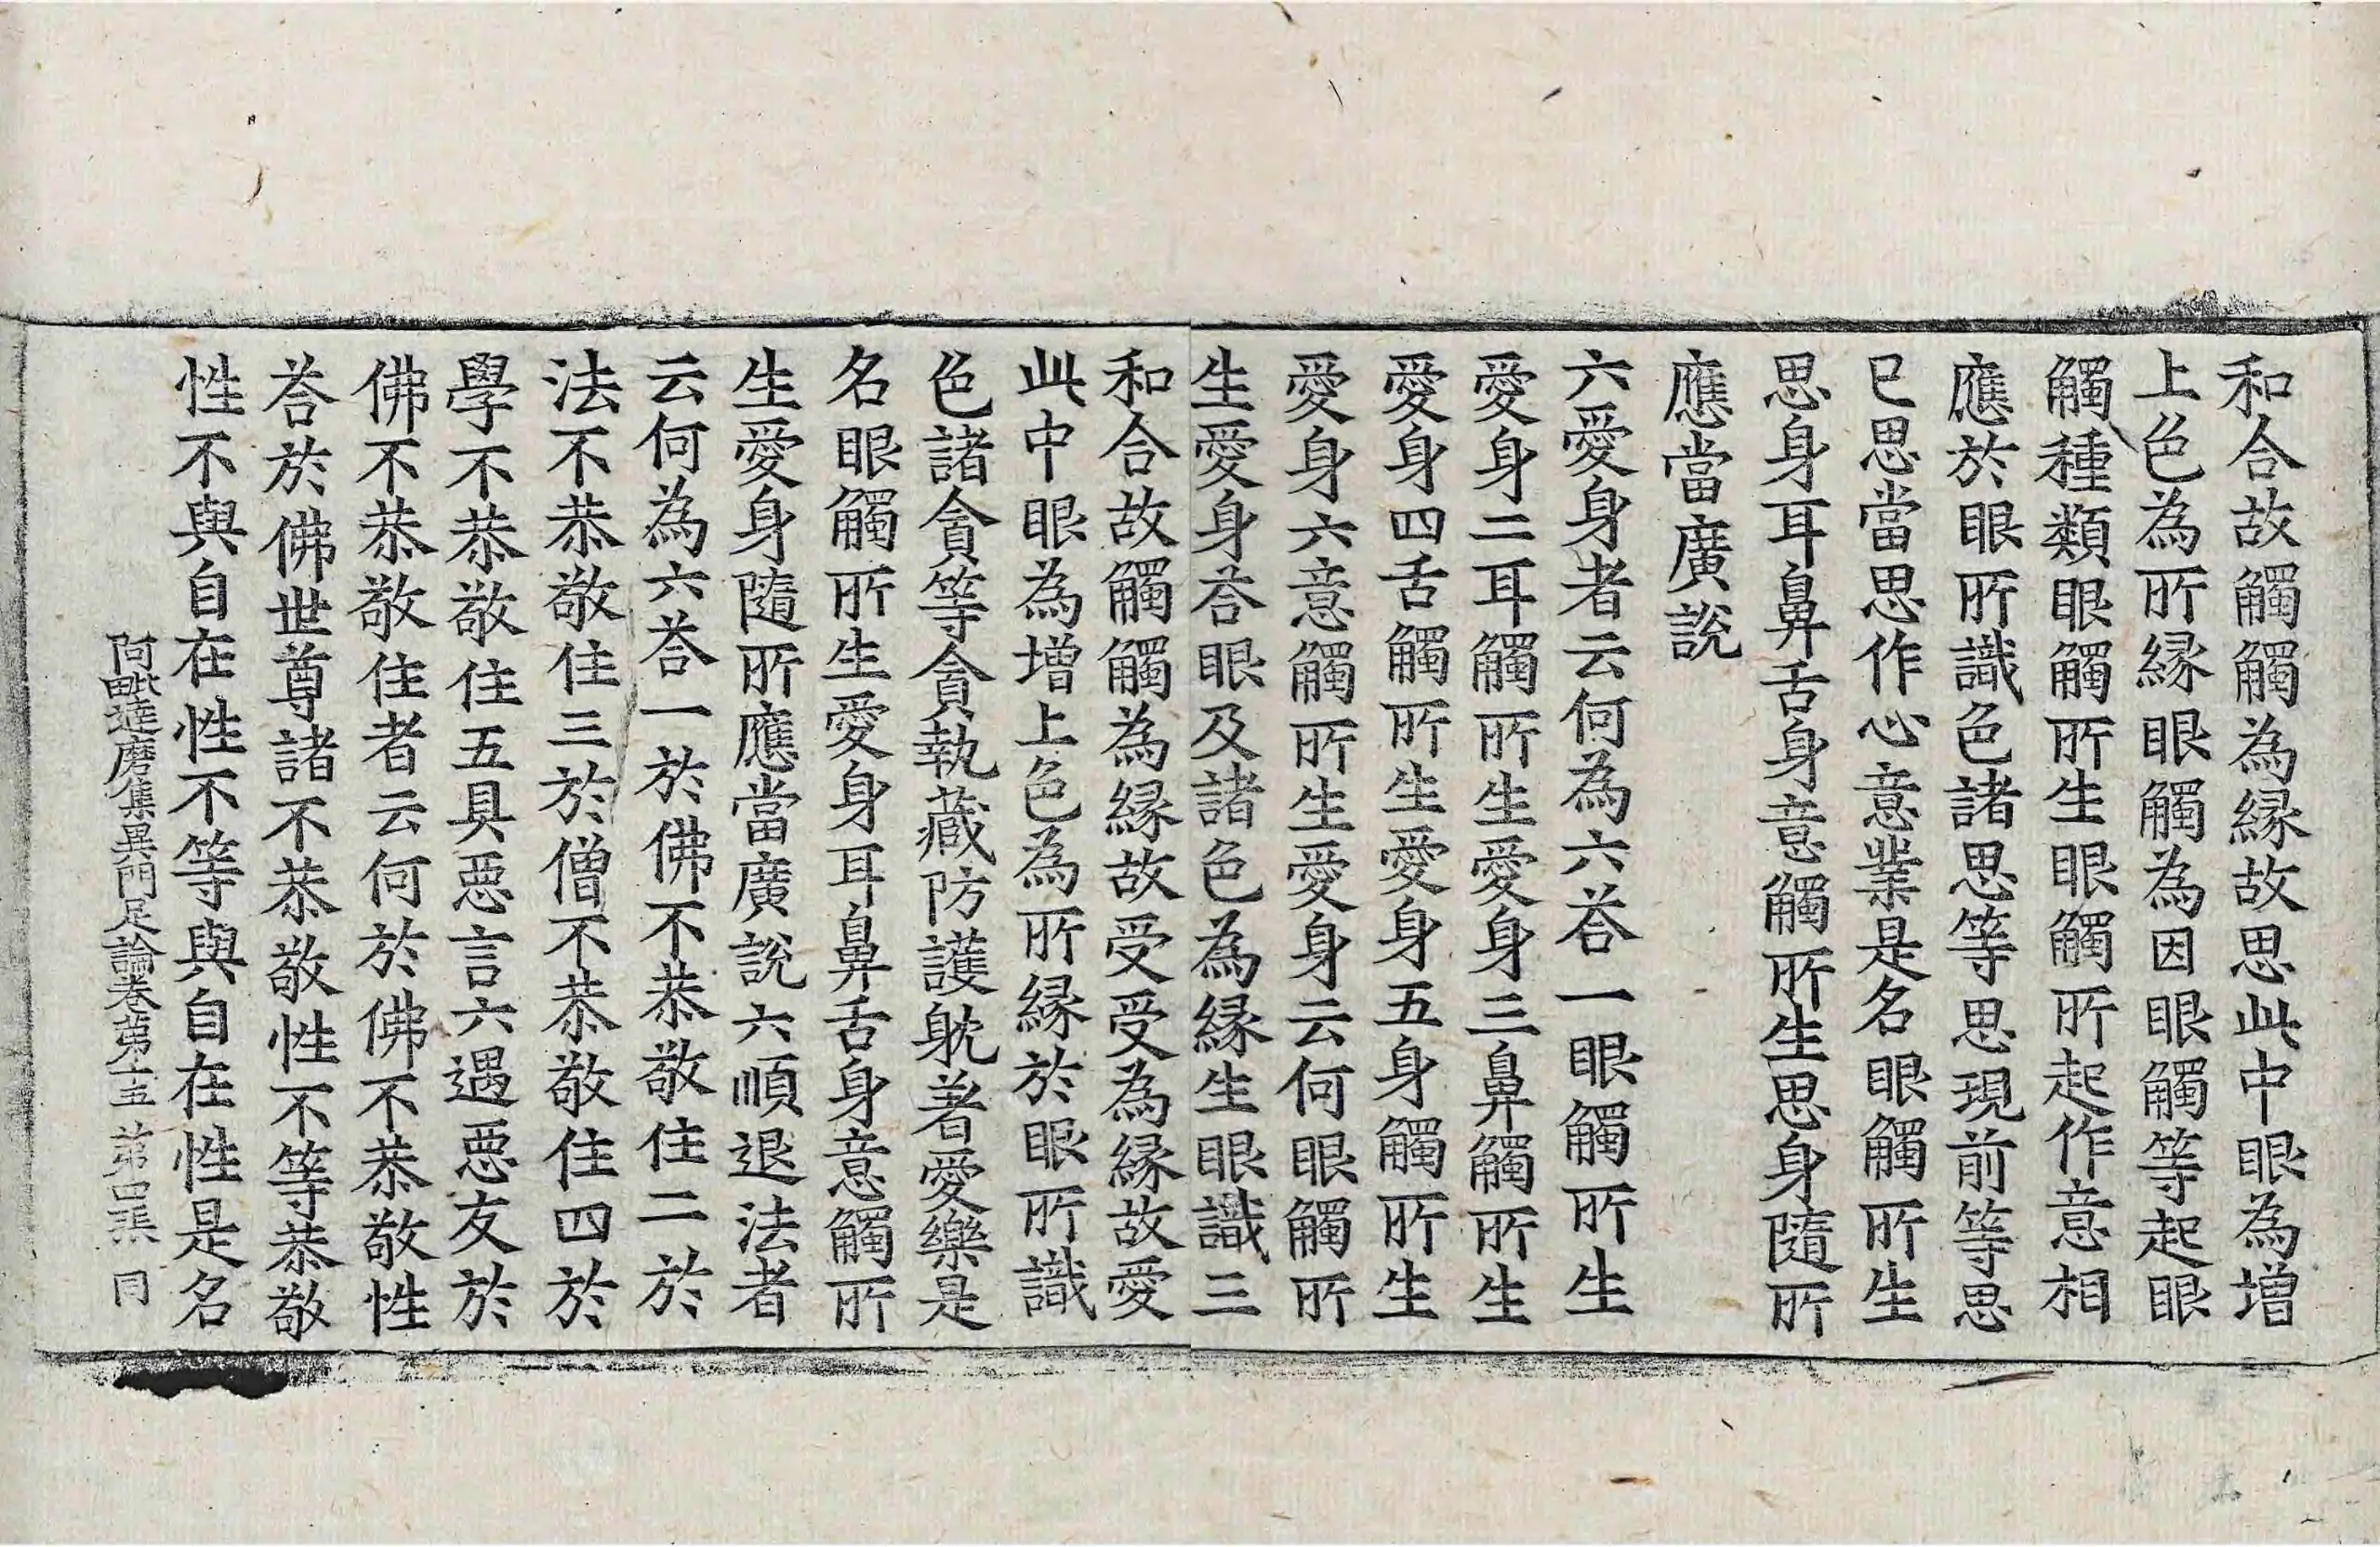 和合故觸觸為縁故思此中眼為增
上色為所縁眼觸為因眼觸等起眼
觸種類眼觸所生眼觸所起作意相
應於眼所識色諸思等思現前等思
已思當思作心意業是名眼觸所生
思身耳鼻舌身意觸所生思身隨所
應當廣說
六愛身者云何為六荅一眼觸所生
愛身二耳觸所生愛身三鼻觸所生
愛身四舌觸所生愛身五身觸所生
愛身六意觸所生愛身云何眼觸所
生愛身荅眼及諸色為縁生眼識三
和合故觸觸為縁故受受為縁故愛
此中眼為增上色為所縁於眼所識
色諸貪等貪執藏防護躭著愛樂是
名眼觸所生愛身耳鼻舌身意觸所
生愛身隨所應當廣說六順退法者
云何為六荅一於佛不恭敬住二於
法不恭敬住三於僧不恭敬住四於
學不恭敬住五具惡言六遇惡友於
佛不恭敬住者云何於佛不恭敬性
荅於佛世尊諸不恭敬性不等恭敬
性不與自在性不等與自在性是名
阿毗達磨集異門足論卷第十五 第四張 同